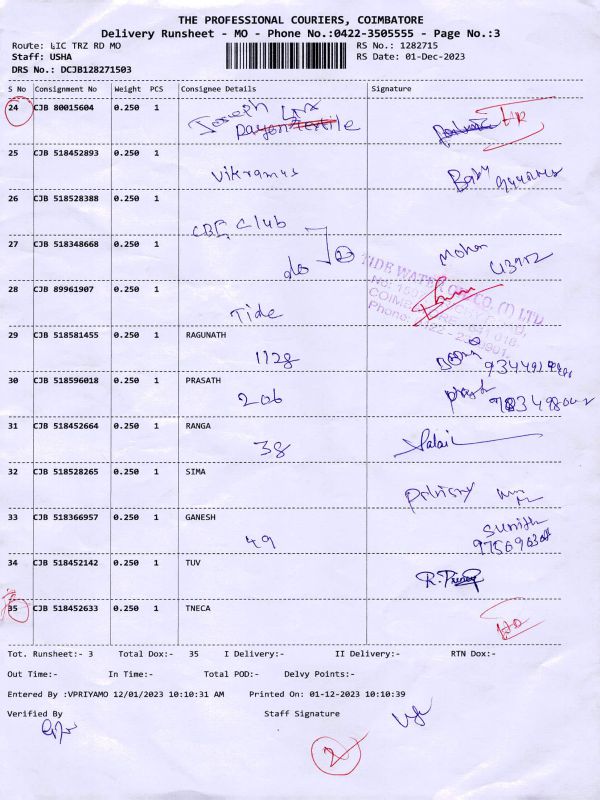 THE PROFESSIONAL COURIERS, COIMBATORE
Delivery Runsheet - MO - Phone No.:0422-3505555 - Page No.:3
Route: LIC TRZ RD MO
RS No.: 1282715
Staff: USHA
RS Date: 01-Dec-2023
DRS No.: DCJB128271503
S No Consignment No Weight PCS Consignee Details Signature
24 CJB 80015604 0.250 1 Joseph
25 CJB 518452893 0.250 1
Vikramus Baby
26 CJB 518528388 0.250 1
CBE Club
27 CJB 518348668 0.250 1 Mohan
do
TIDE WATER OIL CO. (I) LTD
28 CJB 89961907 0.250 1
Tide
29 CJB 518581455 0.250 1 RAGUNATH
1128
30 CJB 518596018 0.250 1 PRASATH
206
31 CJB 518452664 0.250 1 RANGA
38
32 CJB 518528265 0.250 1 SIMA
33 CJB 518366957 0.250 1 GANESH
49
34 CJB 518452142 0.250 1 TUV
35 CJB 518452633 0.250 1 TNECA
Tot. Runsheet:- 3 Total Dox:- 35 I Delivery:- II Delivery:- RTN Dox:-
Out Time:- In Time:- Total POD:- Delvy Points:-
Entered By :VPRIYAMO 12/01/2023 10:10:31 AM Printed On: 01-12-2023 10:10:39
Verified By Staff Signature
2